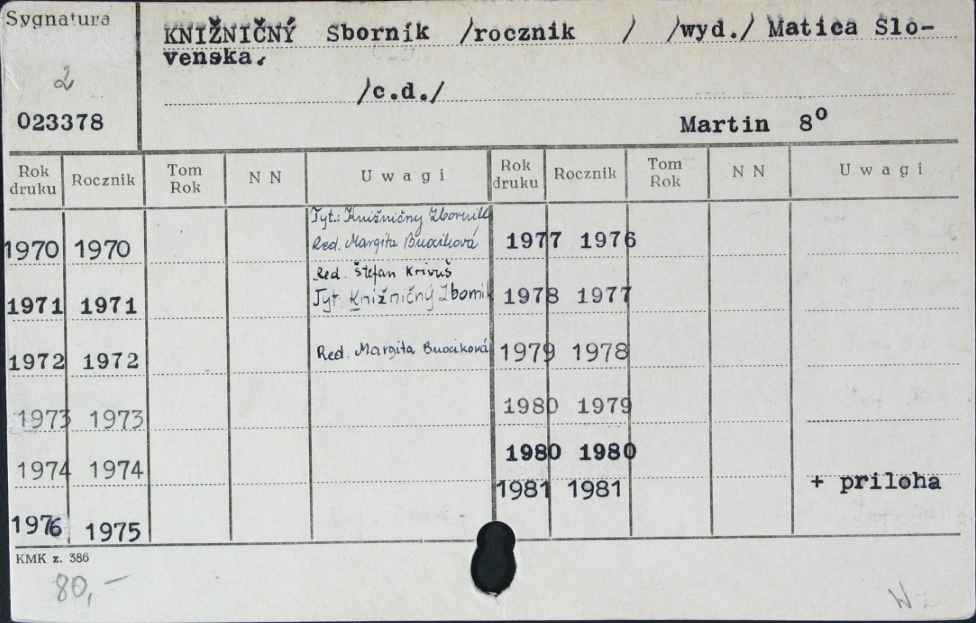 Sygnatura
KNIŽNIČNÝ Sborník /rocznik / /wyd./ Matica Slo-
venska.
2
/c.d./
023378
Martin 8⁰
Rok druku Rocznik Tom Rok N N Uwagi Rok druku Rocznik Tom Rok N N Uwagi
Tyt.: Knižničný Zborník
1970 1970 Red. Margita Bucciková 1977 1976
Red. Štefan Krivuš
1971 1971 Tyt Knižničný Zborník 1978 1977
1972 1972 Red. Margita Bucciková 1979 1978
1973 1973 1980 1979
1980 1980
1974 1974 1981 1981 + priloha
1976 1975
KMK z. 386
80,-